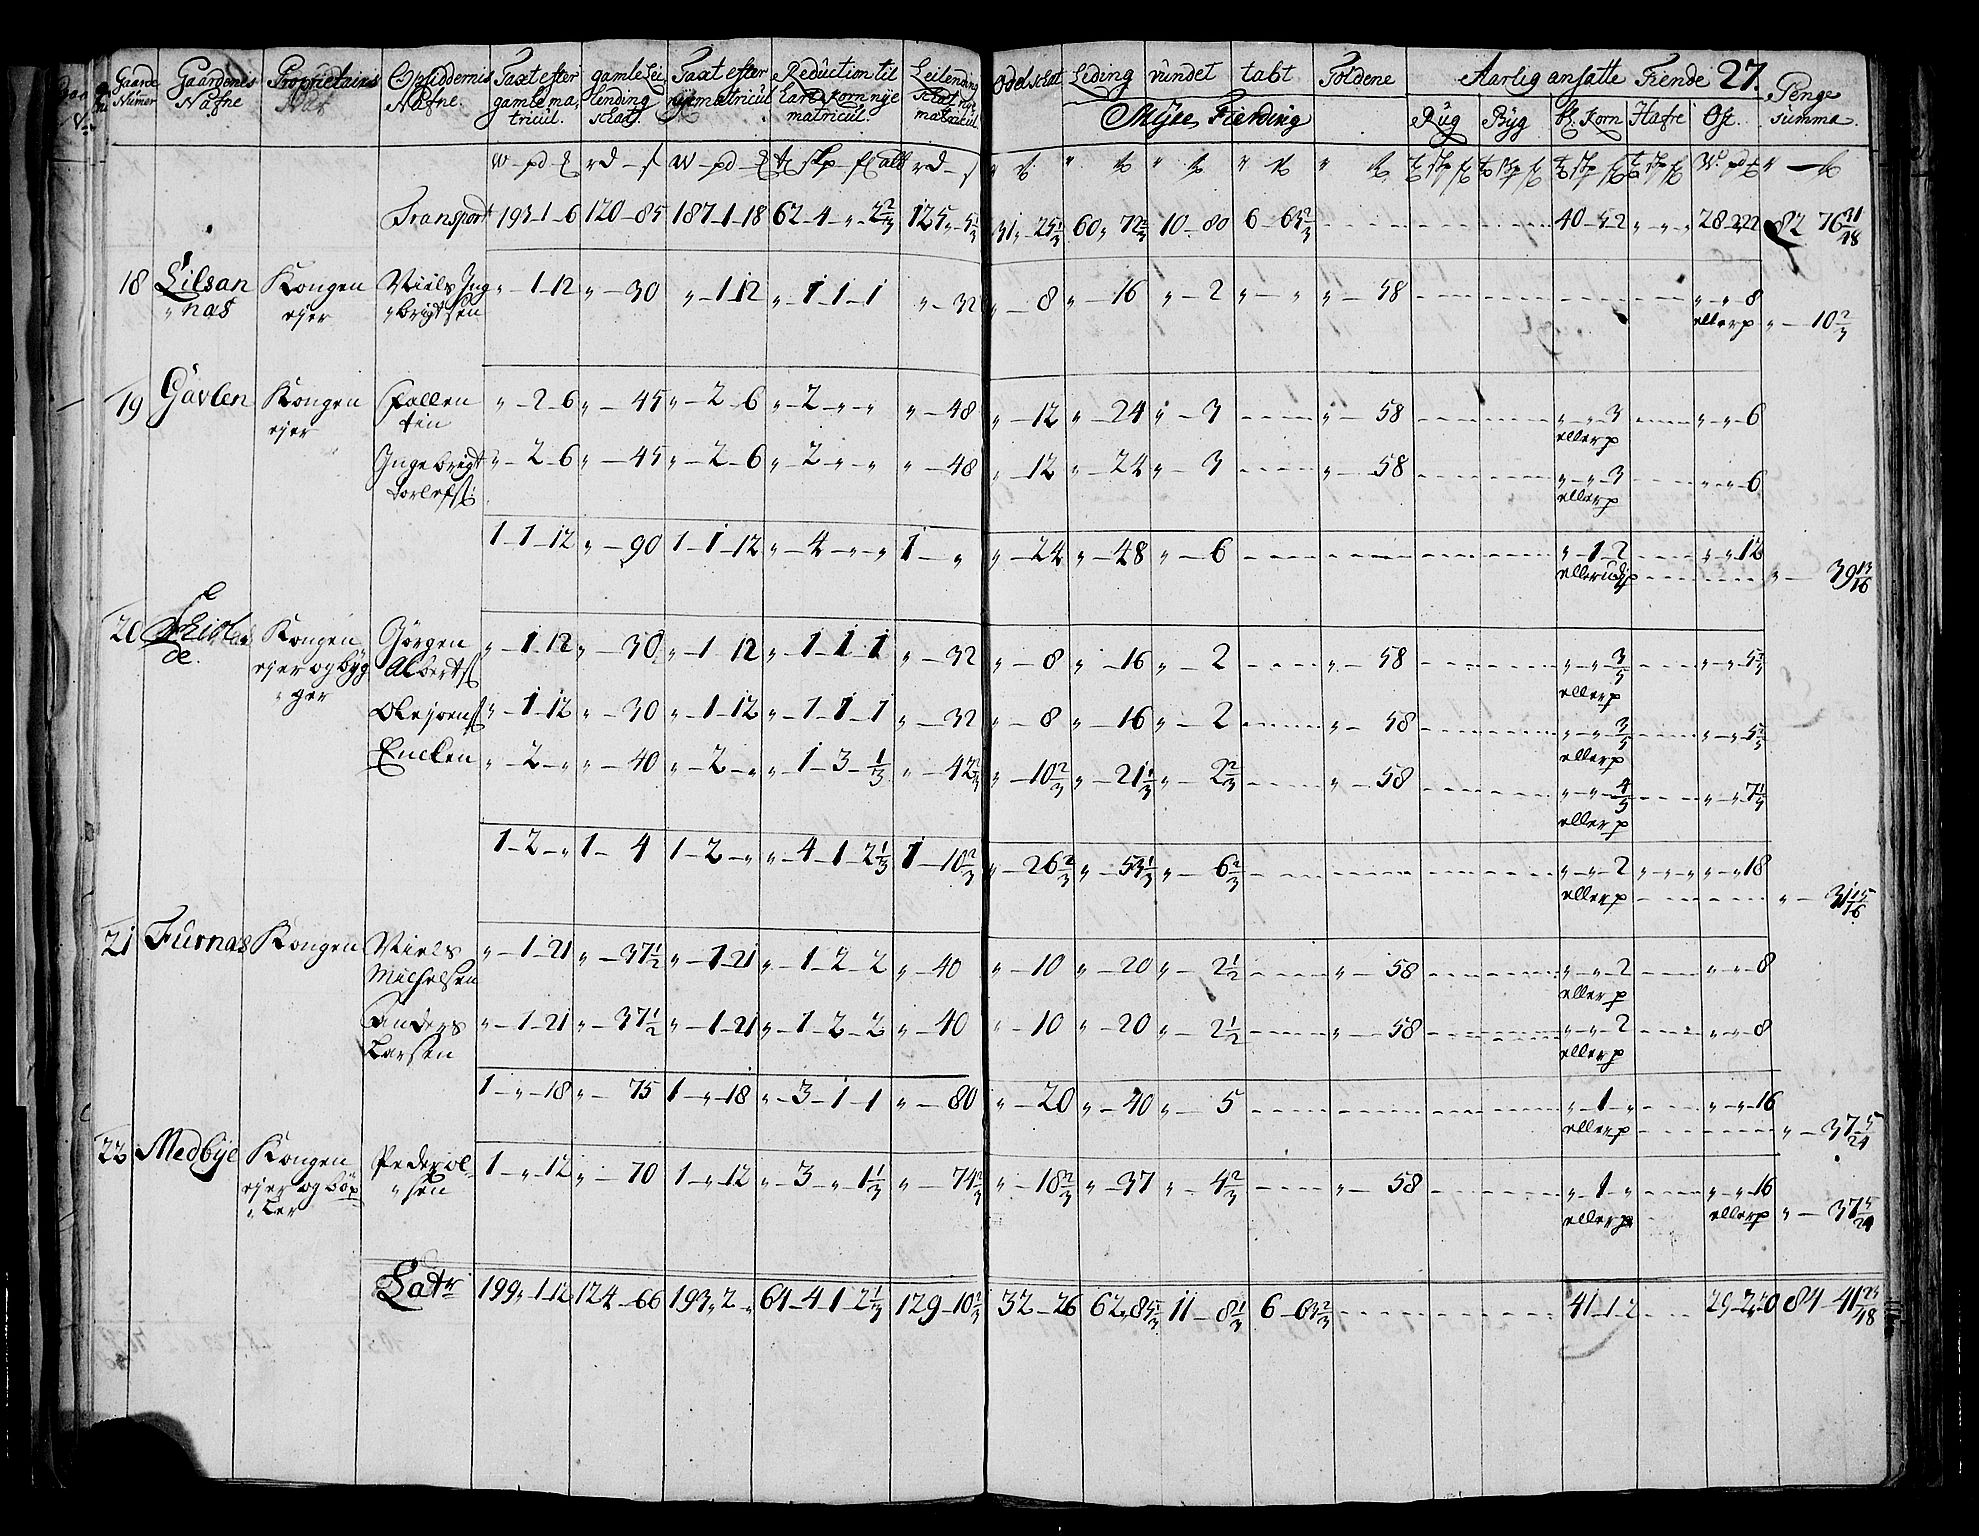 Gaarde Numer | Gaardenes Nafne | Proprietairs | Opsiddernis Nafne | Taxt efter gamle ma, tricul. | gamle Lei lending schat | Taxt efter nye matricul | Reduction til hart korn nye matricul | Leilending schat nye matricul | Odelschat | Leding | vundet | tabt | Toldene | Aarlig ansatte Tiende | 27. | Penge Summa
Rug | Byg | bl. Korn | Hafre | Ost
Transport | 193-1-6 | 120-85 | 187-1-18 | 62-4-„-2 2/3 | 125„-5 1/3 | 31„-25 1/3 | 60„72 2/3 | 10-80 | 6-63 2/3 | 40-5-2 | „-„-„ | 28-2„22 | 82 76 31/48
18 | Lilsan | Kongen | Niels Ing | „-1-12 | „-30 | „-1-12 | „-1-1-1 | „-32 | „-8 | „-16 | „-2 | „-„ | „-58 | „-„-8
„nas | ejer | „brigtsen | eller p | „-10 2/3
19 | Gavlen | Kongen | „-2-6 | „-45 | „-2-6 | „-2-„-„ | „-48 | „-12 | „-24 | „-3 | „-58 | „-„-3 | „-„-6
ejer | eller p
Ingebrigt | „-2-6 | „-45 | „-2-6 | „-2-„-„ | „-48 | „-12 | „-24 | „-3 | „-58 | „-„-3 | „-„-6
Torlefs: | eller p
1-1-12 | „-90 | 1-1-12 | „-4-„-„ | 1-„ | „-24 | „-48 | „-6 | „-1-2 | „-„12
„-39 13/16
20 | Kongen | Görgen | „-1-12 | „-30 | „-1-12 | „-1-1-1 | „-32 | „-8 | „-16 | „-2 | „-58 | „-„-3/5 | „-„-5 2/5
de. | ejer og byg | Alberts | eller p
„ger | Olejoens | „-1-12 | „-30 | „-1-12 | „-1-1-1 | „-32 | „-8 | „-16 | „-2 | „-58 | „-„-3/5 | „-„-5 2/5
eller p
Encken | „-2-„ | „-40 | „-2-„ | „-1-3-1/3 | „-42 2/3 | „-10 2/3 | „-21 1/3 | „-2 2/3 | „-58 | „-„-4/5 | „-„-7 1/5
eller p
1-2-„ | 1-4 | 1-2-„ | „-4-1-2 1/3 | 1-10 2/3 | „-26 2/3 | „-53 1/3 | „-6 2/3 | „-„-2 | „-„-„ | „-„18
eller p | „-31 15/16
21 | Furnas | Kongen | Niels | „-1-21 | „-37 1/2 | „-1-21 | „-1-2-2 | „-40 | „-10 | „-20 | „-2 1/2 | „-58 | „-„-2 | „-„-8
Michelsen | eller p
Anders | „-1-21 | „-37 1/2 | „-1-21 | „-1-2-2 | „-40 | „-10 | „-20 | „-2 1/2 | „-58 | „-„-2 | „-„-8
Larsen | eller p
1-„-18 | „-75 | 1-„-18 | „-3-1-1 | „-80 | „-20 | „-40 | „-5 | „-1-„ | „-„-16
eller p | „-37 5/24
22 | Medbye | Kongen | Peder ol- | 1-„-12 | „-70 | 1-„-12 | „-3-„-1 1/3 | „-74 2/3 | „-18 2/3 | „-37 | „-4 2/3 | „-58 | „-1-„ | „-„-16
ejer og böx | „sen | eller p | eller p | „-37 5/24
„ler
Latr | 199„-1-12 | 124-66 | 193„2-„ | 64-4-1-2 1/3 | 129-10 2/3 | 32-26 | 62„85 1/3 | 11-8 1/3 | 6-63 2/3 | 41-1-2 | 29-2„20 | 84-41 23/48